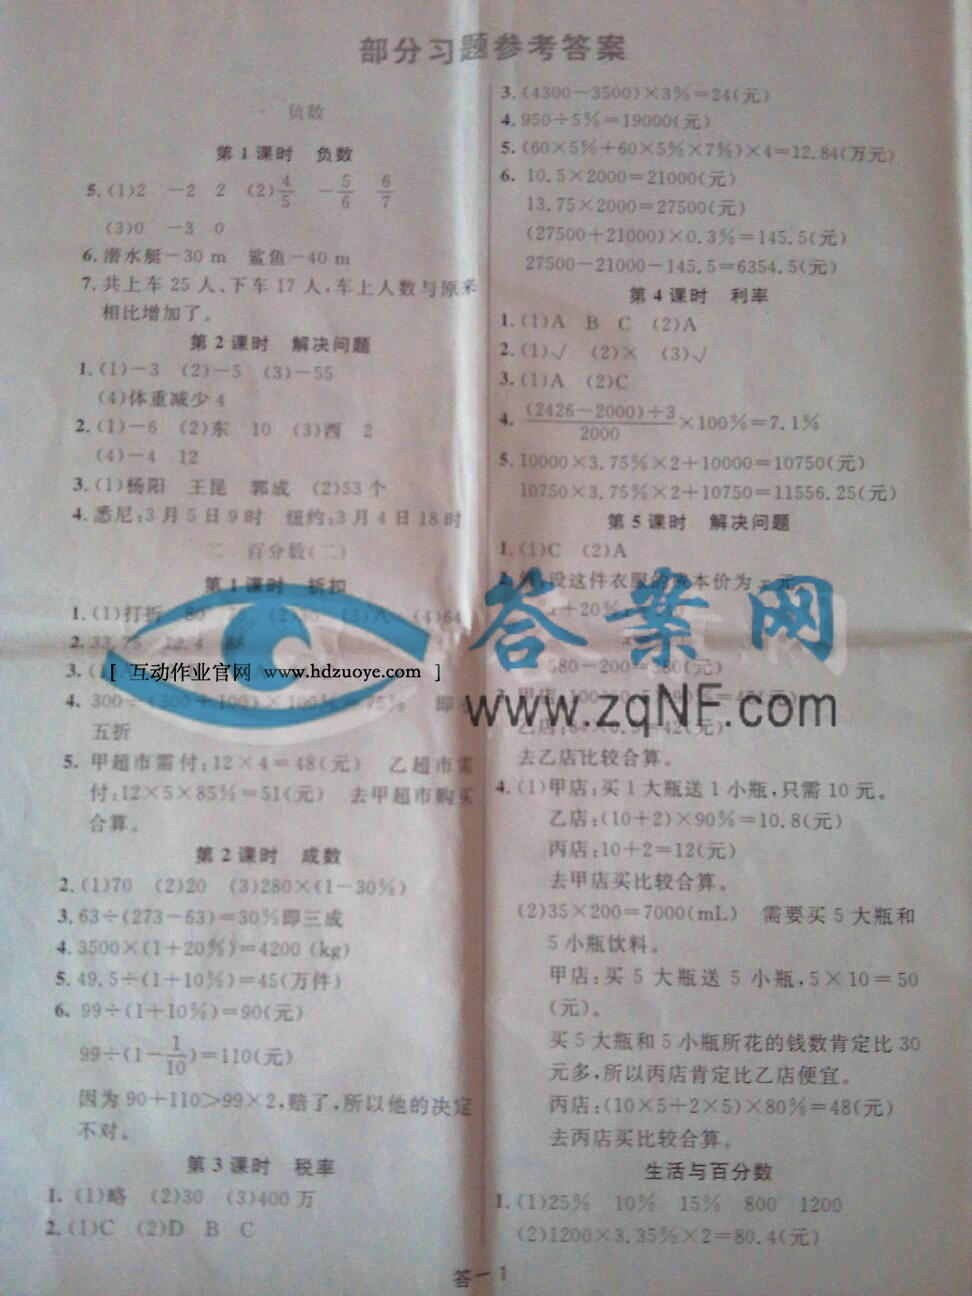 部分习题参考答案
一 负数
第1课时 负数
5.(1)2 -2 2 (2)4/5 -5/6 6/7
(3)0 -3 0
6.潜水艇-30 m 鲨鱼-40 m
7.共上车25人、下车17人,车上人数与原来
相比增加了。
第2课时 解决问题
1.(1)-3 (2)-5 (3)-55
(4)体重减少4
2.(1)-6 (2)东 10 (3)西 2
(4)-4 12
3.(1)杨阳 王昆 郭成 (2)53个
4.悉尼:3月5日9时 纽约:3月4日18时
二 百分数(二)
第1课时 折扣
1.(1)打折 80
2.33.75 22.4 88
3.
[ 互动作业官网 www.hdzuoye.com ]
4.300÷(300+100)×100%=75% 即
五折
5.甲超市需付:12×4=48(元) 乙超市需
付:12×5×85%=51(元) 去甲超市购买
合算。
第2课时 成数
2.(1)70 (2)20 (3)280×(1-30%)
3.63÷(273-63)=30%即三成
4.3500×(1+20%)=4200(kg)
5.49.5÷(1+10%)=45(万件)
6.99÷(1+10%)=90(元)
99÷(1-1/10)=110(元)
因为90+110>99×2,赔了,所以他的决定
不对。
第3课时 税率
1.(1)略 (2)30 (3)400万
2.(1)C (2)D B C
3.(4300-3500)×3%=24(元)
4.950÷5%=19000(元)
5.(60×5%+60×5%×7%)×4=12.84(万元)
6.10.5×2000=21000(元)
13.75×2000=27500(元)
(27500+21000)×0.3%=145.5(元)
27500-21000-145.5=6354.5(元)
第4课时 利率
1.(1)A B C (2)A
2.(1)√ (2)× (3)√
3.(1)A (2)C
4.(2426-2000)÷3/2000×100%=7.1%
5.10000×3.75%×2+10000=10750(元)
10750×3.75%×2+10750=11556.25(元)
第5课时 解决问题
1.(1)C (2)A
设这件衣服的成本价为x元
x+20%x
答案网
580-200=380(元)
www.zqNF.com
甲店:
乙店:84×0.5=42(元)
去乙店比较合算。
4.(1)甲店:买1大瓶送1小瓶,只需10元。
乙店:(10+2)×90%=10.8(元)
丙店:10+2=12(元)
去甲店买比较合算。
(2)35×200=7000(mL) 需要买5大瓶和
5小瓶饮料。
甲店:买5大瓶送5小瓶,5×10=50
(元)。
买5大瓶和5小瓶所花的钱数肯定比30
元多,所以丙店肯定比乙店便宜。
丙店:(10×5+2×5)×80%=48(元)
去丙店买比较合算。
生活与百分数
1.(1)25% 10% 15% 800 1200
(2)1200×3.35%×2=80.4(元)
答—1